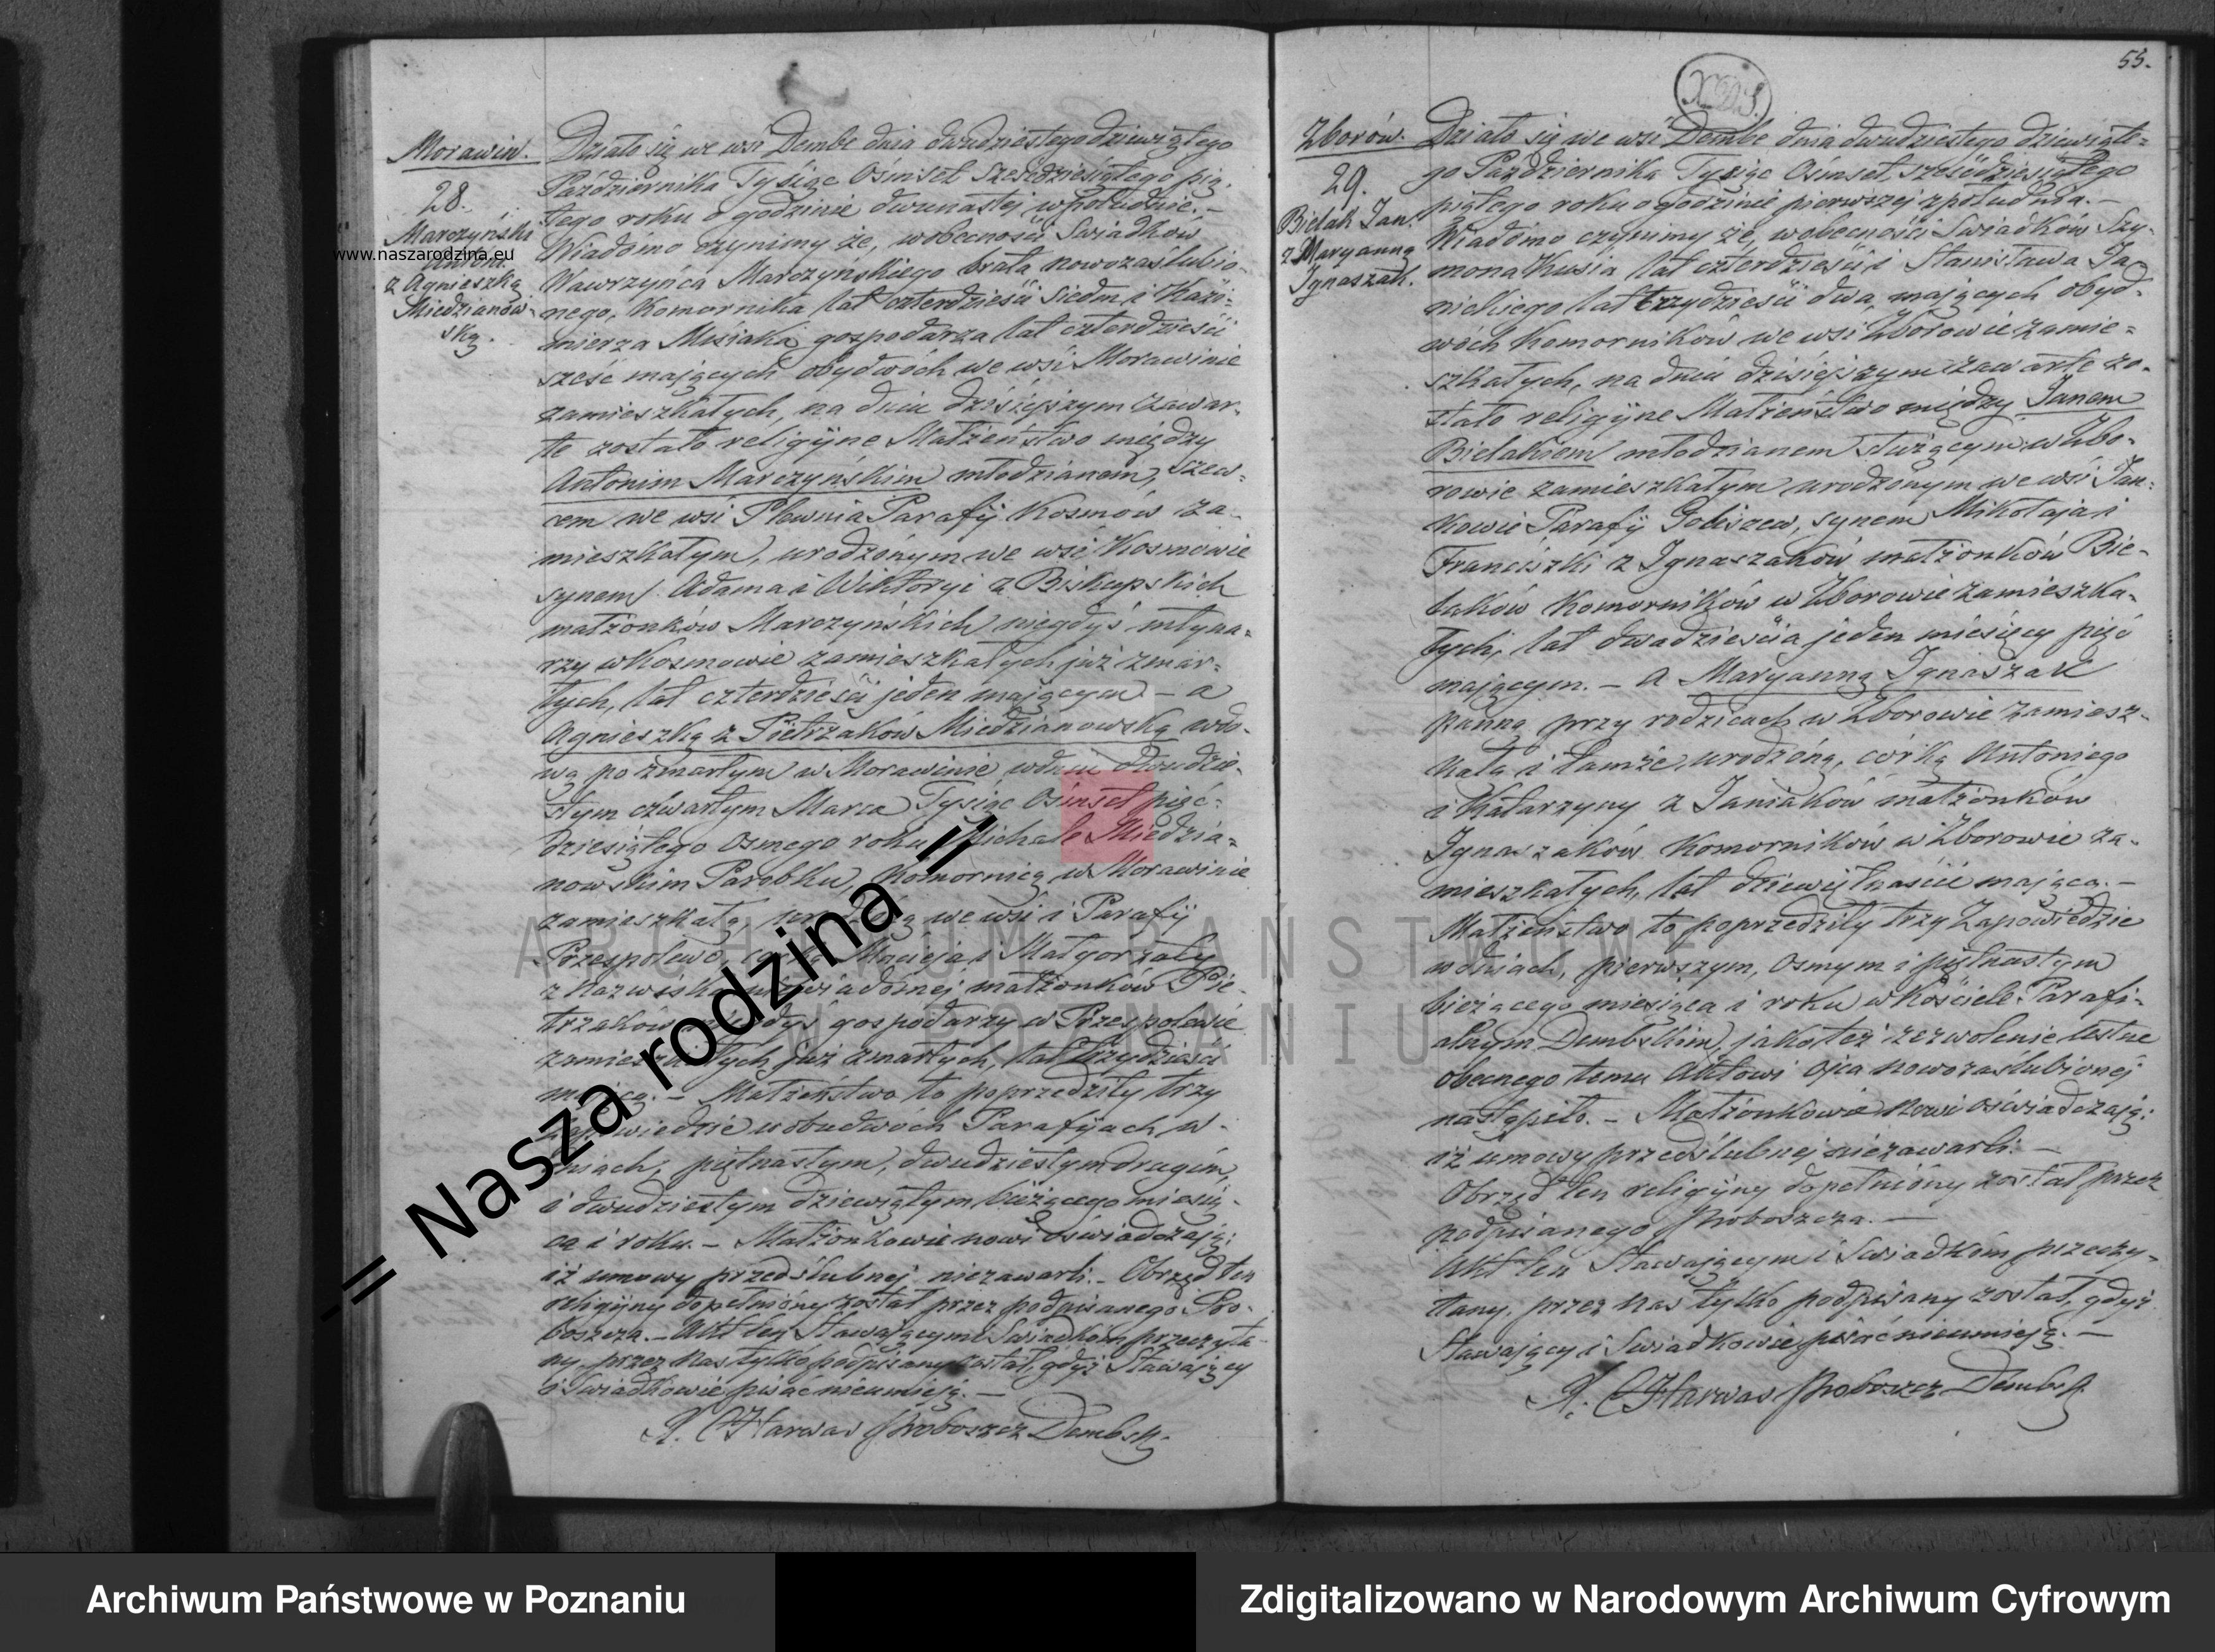 Morawin.
28.
Marczyński
Antoni
z Agnieszką
Miedzianow-
ską.
www.naszarodzina.eu
Działo się we wsi Dembe dnia dwudziestego dziewiątego
Października Tysiąc Ośmset sześćdziesiątego pią-
tego roku o godzinie dwunastej w południe. –
Wiadomo czynimy że, w obecności Świadków
Wawrzyńca Marczyńskiego brata nowozaślubio-
nego, Komornika lat czterdzieści siedm i Kazi-
mierza Misiaka gospodarza lat czterdzieści
sześć mających obydwóch we wsi Morawinie
zamieszkałych, na dniu dzisiejszym zawar-
te zostało religijne Małżeństwo między
Antonim Marczyńskim młodzianem, szew-
cem we wsi Plewnia Parafij Kosmów za-
mieszkałym, urodzonym we wsi Kosmowie
synem Adama i Wiktoryi z Biskupskich
małżonków Marczyńskich niegdyś młyna-
rzy w Kosmowie zamieszkałych już zmar-
łych, lat czterdzieści jeden mającym – a
Agnieszką z Pietrzaków Miedzianowską wdo-
wą po zmarłym w Morawinie w dniu dwudzie-
stym czwartym Marca Tysiąc Ośmset pięć-
dziesiątego osmego roku Michale Miedzia-
nowskim Parobku, Komornicą w Morawinie
zamieszkałą, urodzoną we wsi i Parafij
Przespolewo, córką Macieja i Małgorzaty
z nazwiska niewiadomej małżonków Pie-
trzaków niegdyś gospodarzy w Przespolewie
zamieszkałych już zmarłych, lat trzydzieści
mającą. – Małżeństwo to poprzedziły trzy
Zapowiedzie w obudwóch Parafijach w
dniach, piętnastym, dwudziestym drugim,
i dwudziestym dziewiątym bieżącego miesią-
ca i roku. – Małżonkowie nowi oświadczają;
iż umowy przedślubnej niezawarli. – Obrząd ten
religijny dopełniony został przez podpisanego Pro-
boszcza. – Akt ten Stawającym i Świadkom przeczyta-
ny przez nas tylko podpisany został, gdyż Stawający
i Świadkowie pisać nieumieją. –
X. Harwas Proboszcz Dembski
55.
Zborów.
29.
Bielak Jan
z Maryanną
Ignaszak.
Działo się we wsi Dembe dnia dwudziestego dziewiąte-
go Października Tysiąc Ośmset sześćdziesiątego
piątego roku o godzinie pierwszej z południa. –
Wiadomo czynimy że, w obecności Świadków Szy-
mona Kusia lat czterdzieści i Stanisława Ja-
nickiego lat trzydzieści dwa, mających obyd-
wóch Komorników we wsi Zborowie zamie-
szkałych, na dniu dzisiejszym zawarte zo-
stało religijne Małżeństwo między Janem
Bielakiem młodzianem służącym w Zbo-
rowie zamieszkałym urodzonym we wsi Jan-
kowie Parafij Goliszew, synem Mikołaja i
Franciszki z Ignaszaków małżonków Bie-
laków Komorników w Zborowie zamieszka-
łych, lat dwadzieścia jeden miesięcy pięć
mającym. – A Maryanną Ignaszak
panną przy rodzicach w Zborowie zamiesz-
kałą i tamże urodzoną, córką Antoniego
i Katarzyny z Janiaków małżonków
Ignaszaków Komorników w Zborowie za-
mieszkałych, lat dziewiętnaście mającą. –
Małżeństwo to poprzedziły trzy Zapowiedzie
w dniach, pierwszym, osmym i piętnastym
bieżącego miesiąca i roku w Kościele Parafi-
alnym Dembskim, jakoteż zezwolenie ustne
obecnego temu Aktowi Ojca nowozaślubionej
nastąpiło. – Małżonkowie nowi oświadczają;
iż umowy przedślubnej niezawarli. –
Obrząd ten religijny dopełniony został przez
podpisanego Proboszcza. –
Akt ten Stawającym i Świadkom przeczy-
tany, przez nas tylko podpisany został, gdyż
Stawający i Świadkowie pisać nieumieją. –
X. Harwas Proboszcz Dembski
ARCHIWUM PAŃSTWOWE
W POZNANIU
-= Nasza rodzina =-
Archiwum Państwowe w Poznaniu
Zdigitalizowano w Narodowym Archiwum Cyfrowym